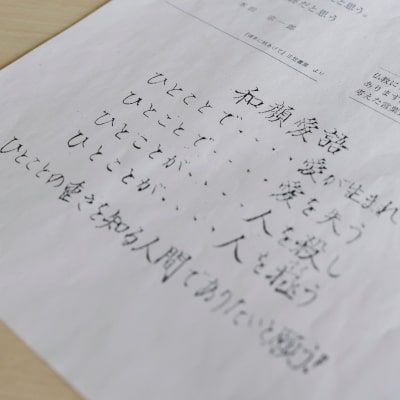 だと思う
和顔愛語
ひとことで・・・・愛が生まれ
ひとことで・・・・愛を失う
ひとことが・・・・人を殺し
ひとことが・・・・人を救う
ひとことの重さを知る人間でありたいと願う!
仏教に
あります
考えた言葉